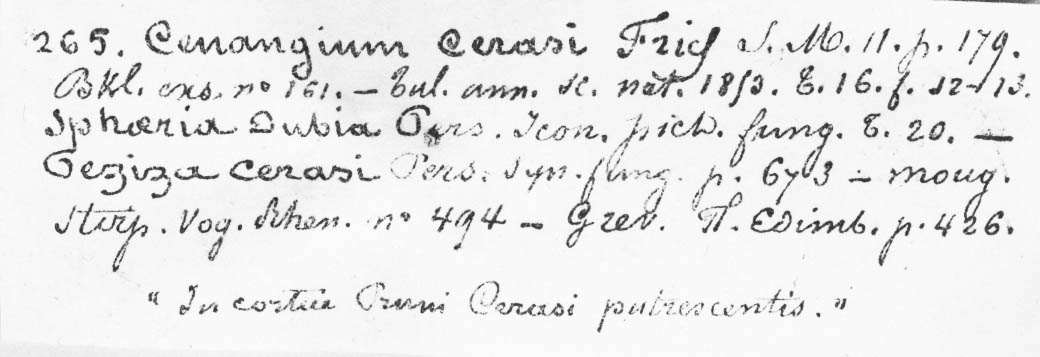 265. Cenangium Cerasi Fries S. M. 11. p. 179.
Bkl. exs. no 161. – Tul. ann. sc. nat. 1853. t. 16. f. 12-13.
Sphæria Dubia Pers. Icon. pict. fung. t. 20. —
Peziza Cerasi Pers. Syn. fung. p. 673 – Moug.
Stirp. Vog. Rhen. no 494 – Grev. Fl. Edimb. p. 426.
" In cortice Pruni Cerasi putrescentis. "